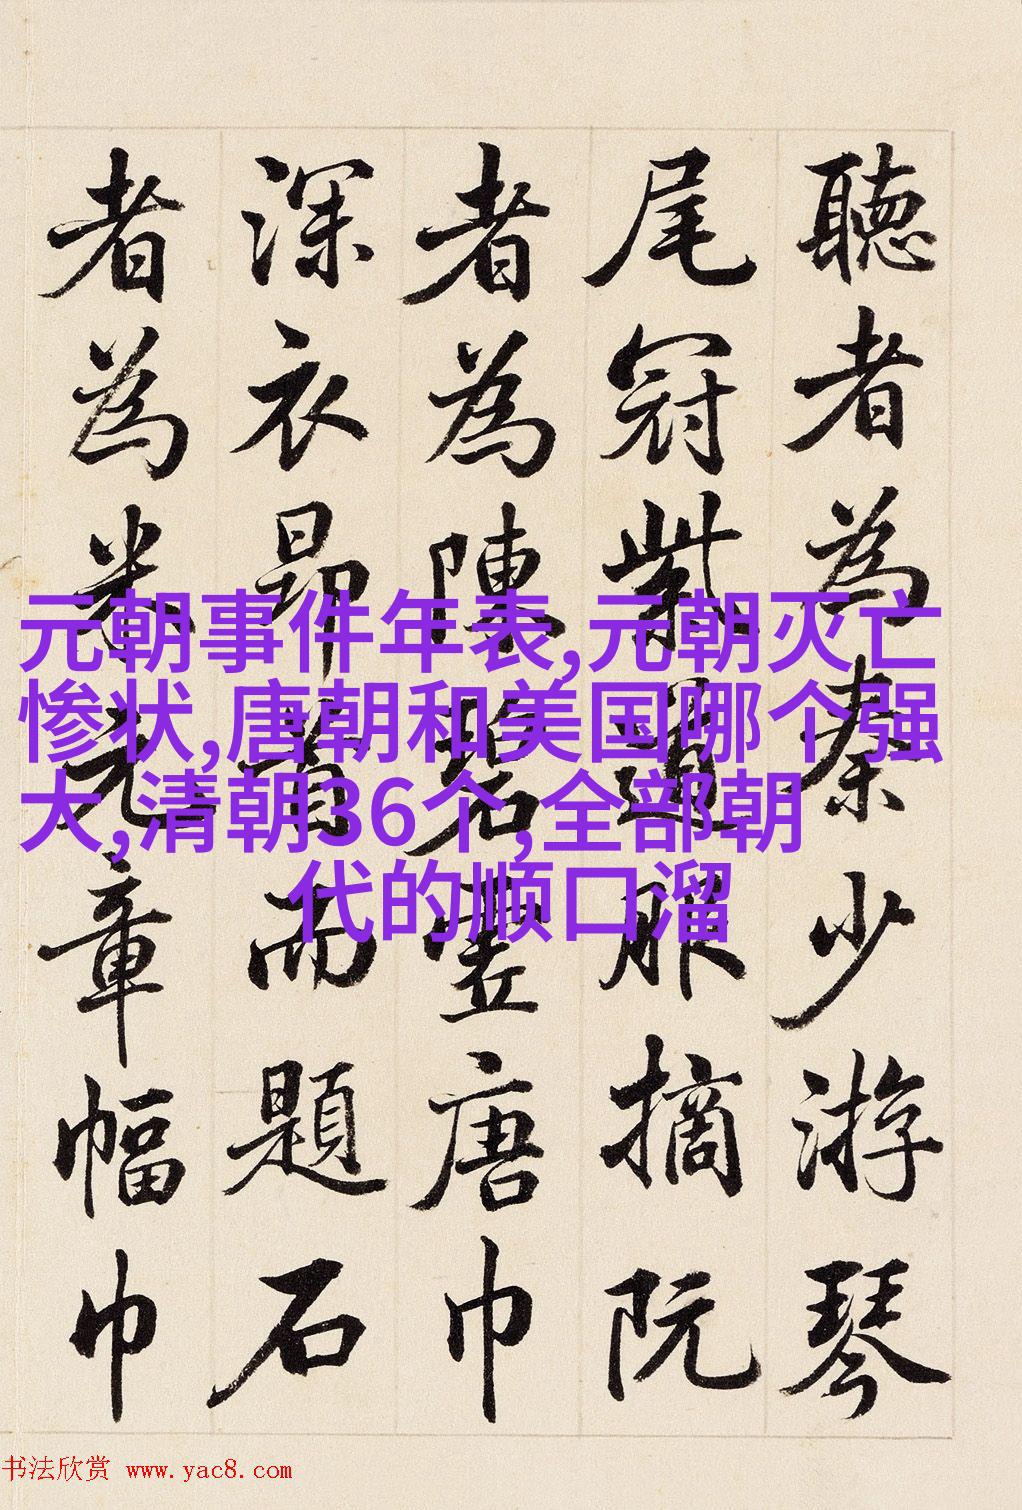 聽者為秦少游琴
尾冠紫道服摘阮
者為陳碧虛唐巾
深衣昂首而題石
者為米元章幅巾
元朝事件年表,元朝灭亡
惨状,唐朝和美国哪个强
大,清朝36个,全部朝
代的顺口溜
书法欣赏 www.yac8.com